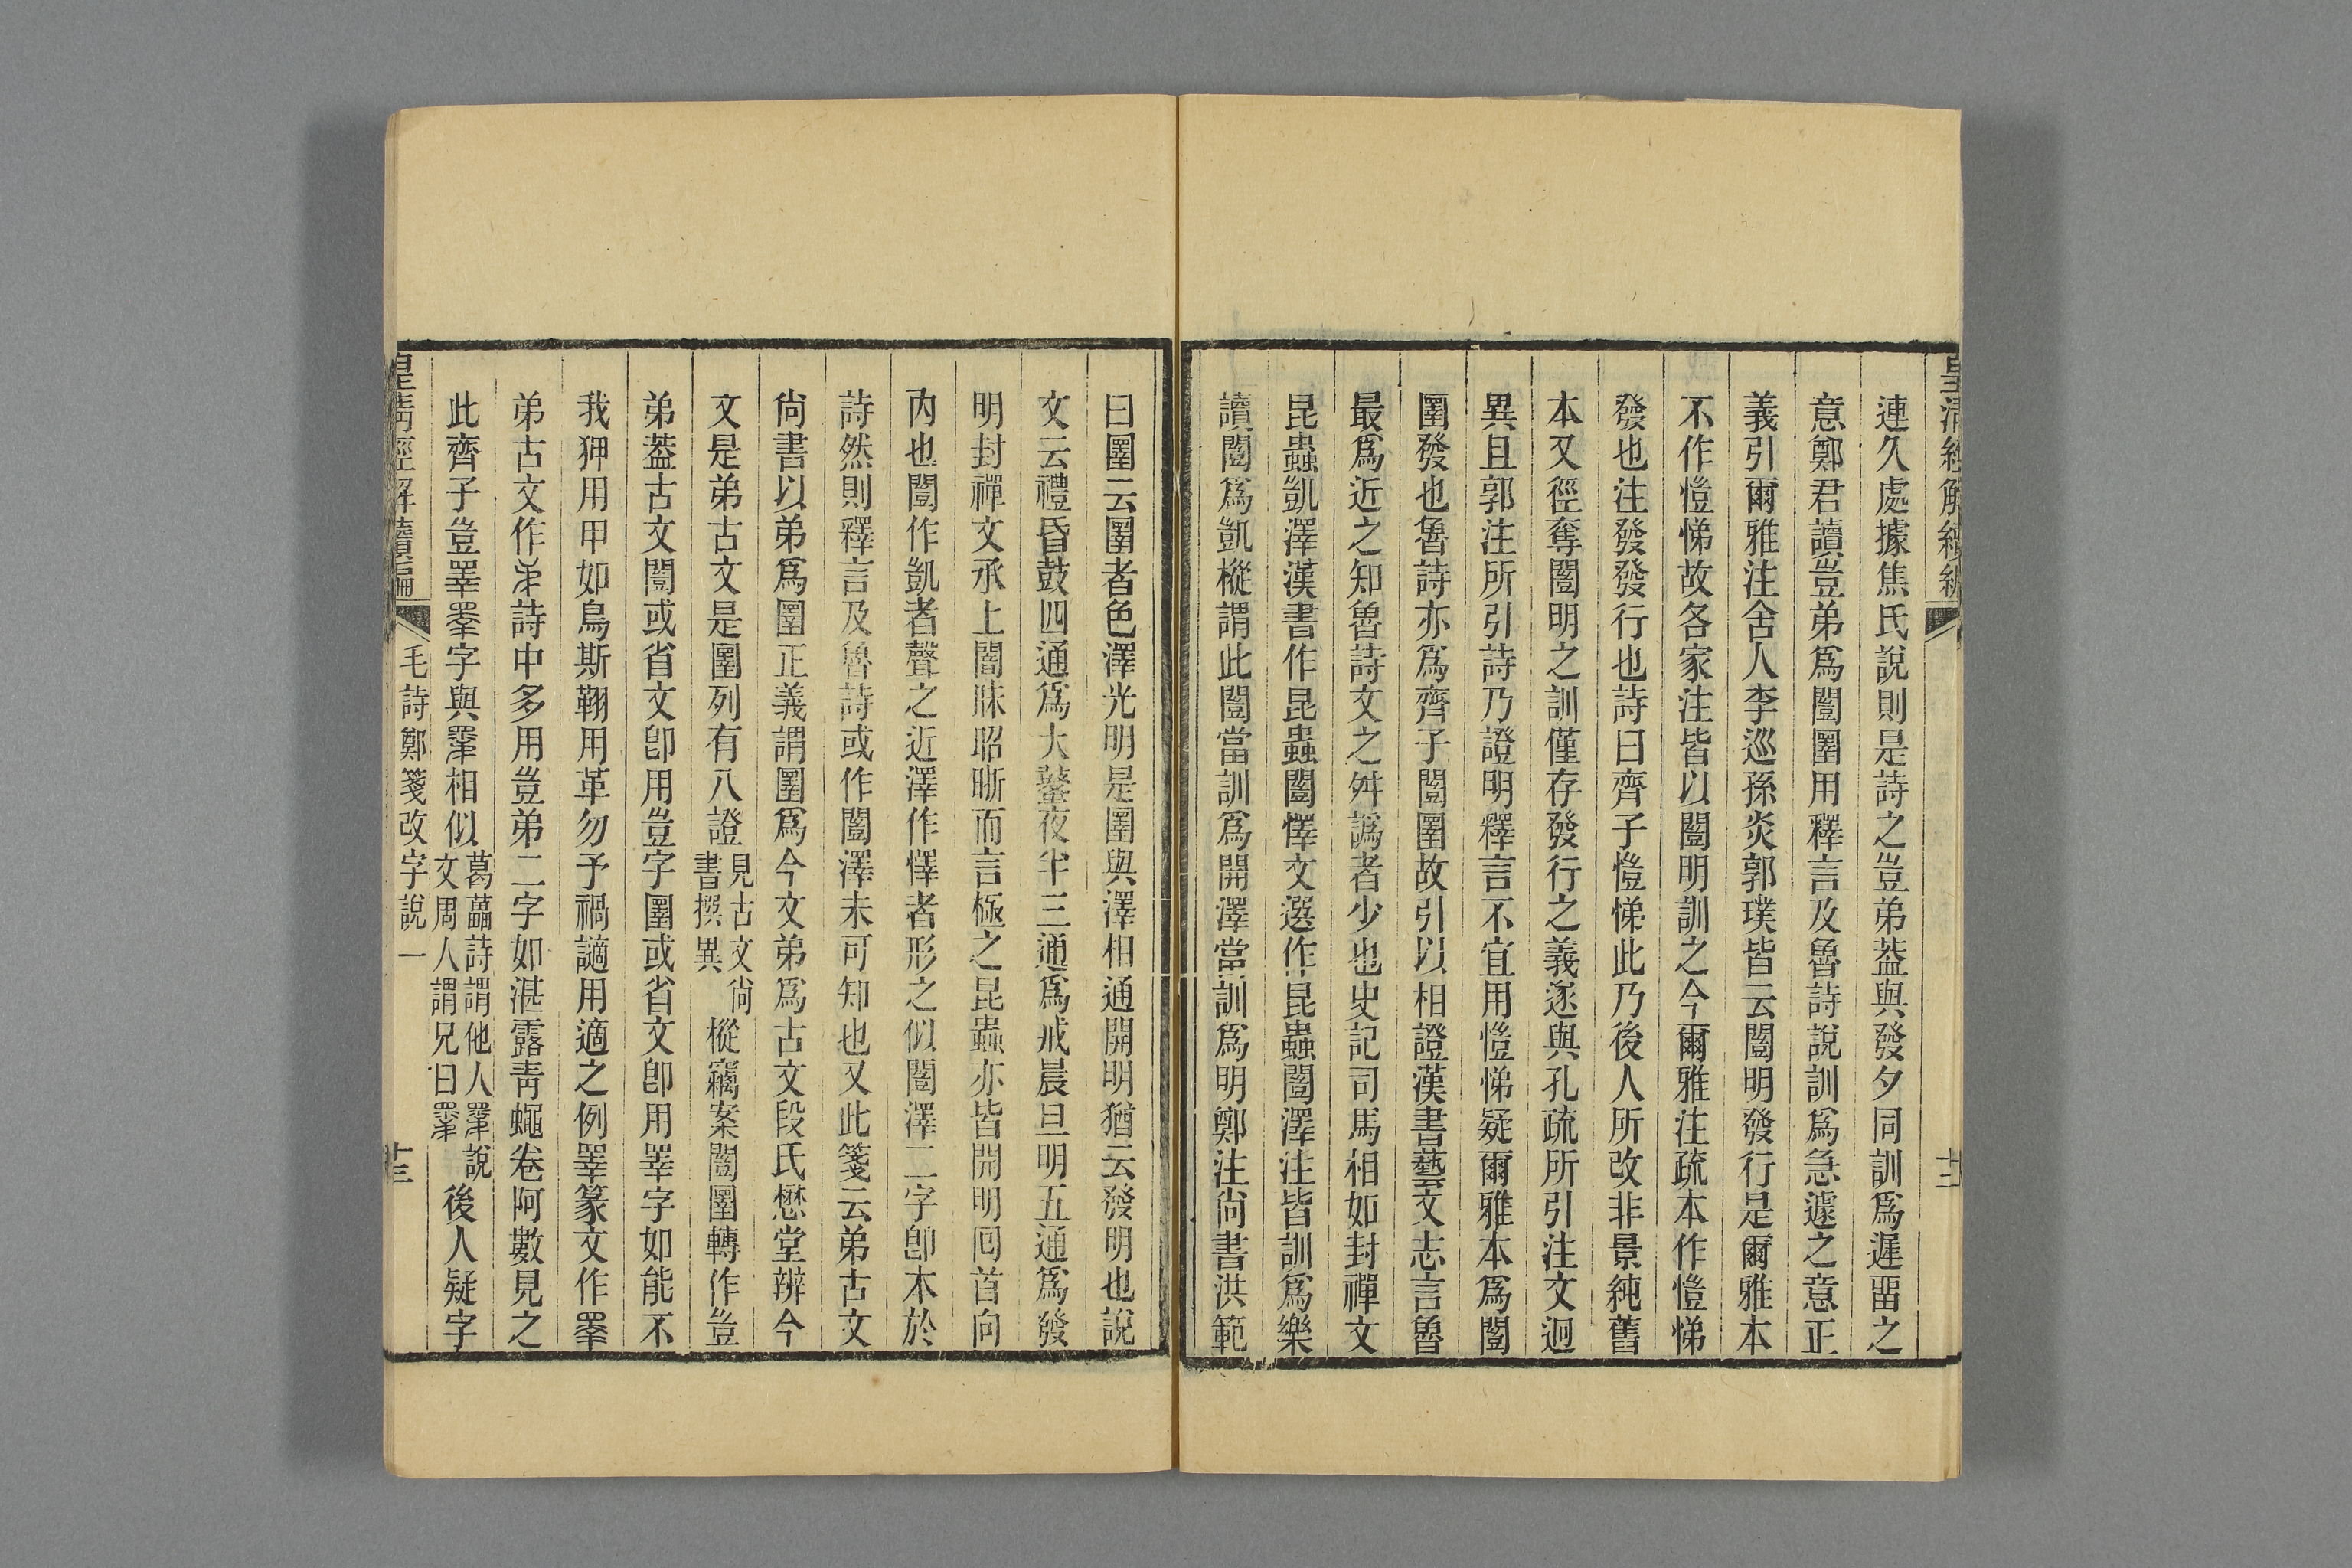 連久處據焦氏說則是詩之豈弟葢與發夕同訓爲遲畱之
意鄭君讀豈弟爲闓圛用釋言及魯詩說訓爲急遽之意正
義引爾雅注舍人李巡孫炎郭璞皆云闓明發行是爾雅本
不作愷悌故各家注皆以闓明訓之今爾雅注疏本作愷悌
發也注發發行也詩曰齊子愷悌此乃後人所改非景純舊
本又徑奪闓明之訓僅存發行之義遂與孔疏所引注文迥
異且郭注所引詩乃證明釋言不宜用愷悌疑爾雅本爲闓
圛發也魯詩亦爲齊子闓圛故引以相證漢書藝文志言魯
最爲近之知魯詩文之舛譌者少也史記司馬相如封禪文
昆蟲凱澤漢書作昆蟲闓懌文選作昆蟲闓澤注皆訓爲樂
讀闓爲凱樅謂此闓當訓爲開澤當訓爲明鄭注尙書洪範
曰圛云圛者色澤光明是圛與澤相通開明猶云發明也說
文云禮昏鼓四通爲大鼜夜半三通爲戒晨旦明五通爲發
明封禪文承上闇昧昭晰而言極之昆蟲亦皆開明回首向
內也闓作凱者聲之近澤作懌者形之似闓澤二字卽本於
詩然則釋言及魯詩或作闓澤未可知也又此箋云弟古文
尙書以弟爲圛正義謂圛爲今文弟爲古文段氏懋堂辨今
文是弟古文是圛列有八證見古文尙書撰異樅竊案闓圛轉作豈
弟葢古文闓或省文卽用豈字圛或省文卽用睪字如能不
我狎用甲如鳥斯翱用革勿予禍讁用適之例睪篆文作
弟古文作詩中多用豈弟二字如湛露靑蠅卷阿數見之
此齊子豈睪字與相似葛藟詩謂他人說文周人謂兄曰後人疑字
皇淸經解續編
毛詩鄭箋改字說一